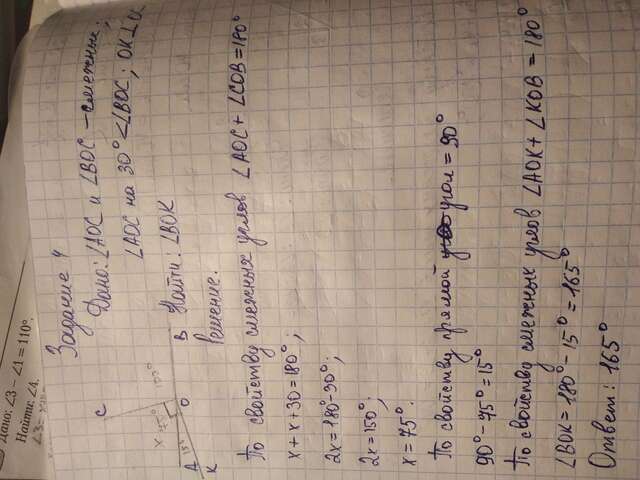 Дано: ∠3 − ∠1 = 110°.
Найти: ∠4.
Задание 4
Дано: ∠AOC и ∠BOC – смежных;
∠AOC на 30° < ∠BOC; OK⊥OC
Найти: ∠BOK
Решение.
C
x 75° 105°
A 15° O B
K
По свойству смежных углов ∠AOC + ∠COB = 180°
x + x + 30 = 180°;
2x = 180° - 30°;
2x = 150°;
x = 75°.
По свойству прямой угол = 90°
90° - 75° = 15°
По свойству смежных углов ∠AOK + ∠KOB = 180°
∠BOK = 180° - 15° = 165°
Ответ: 165°